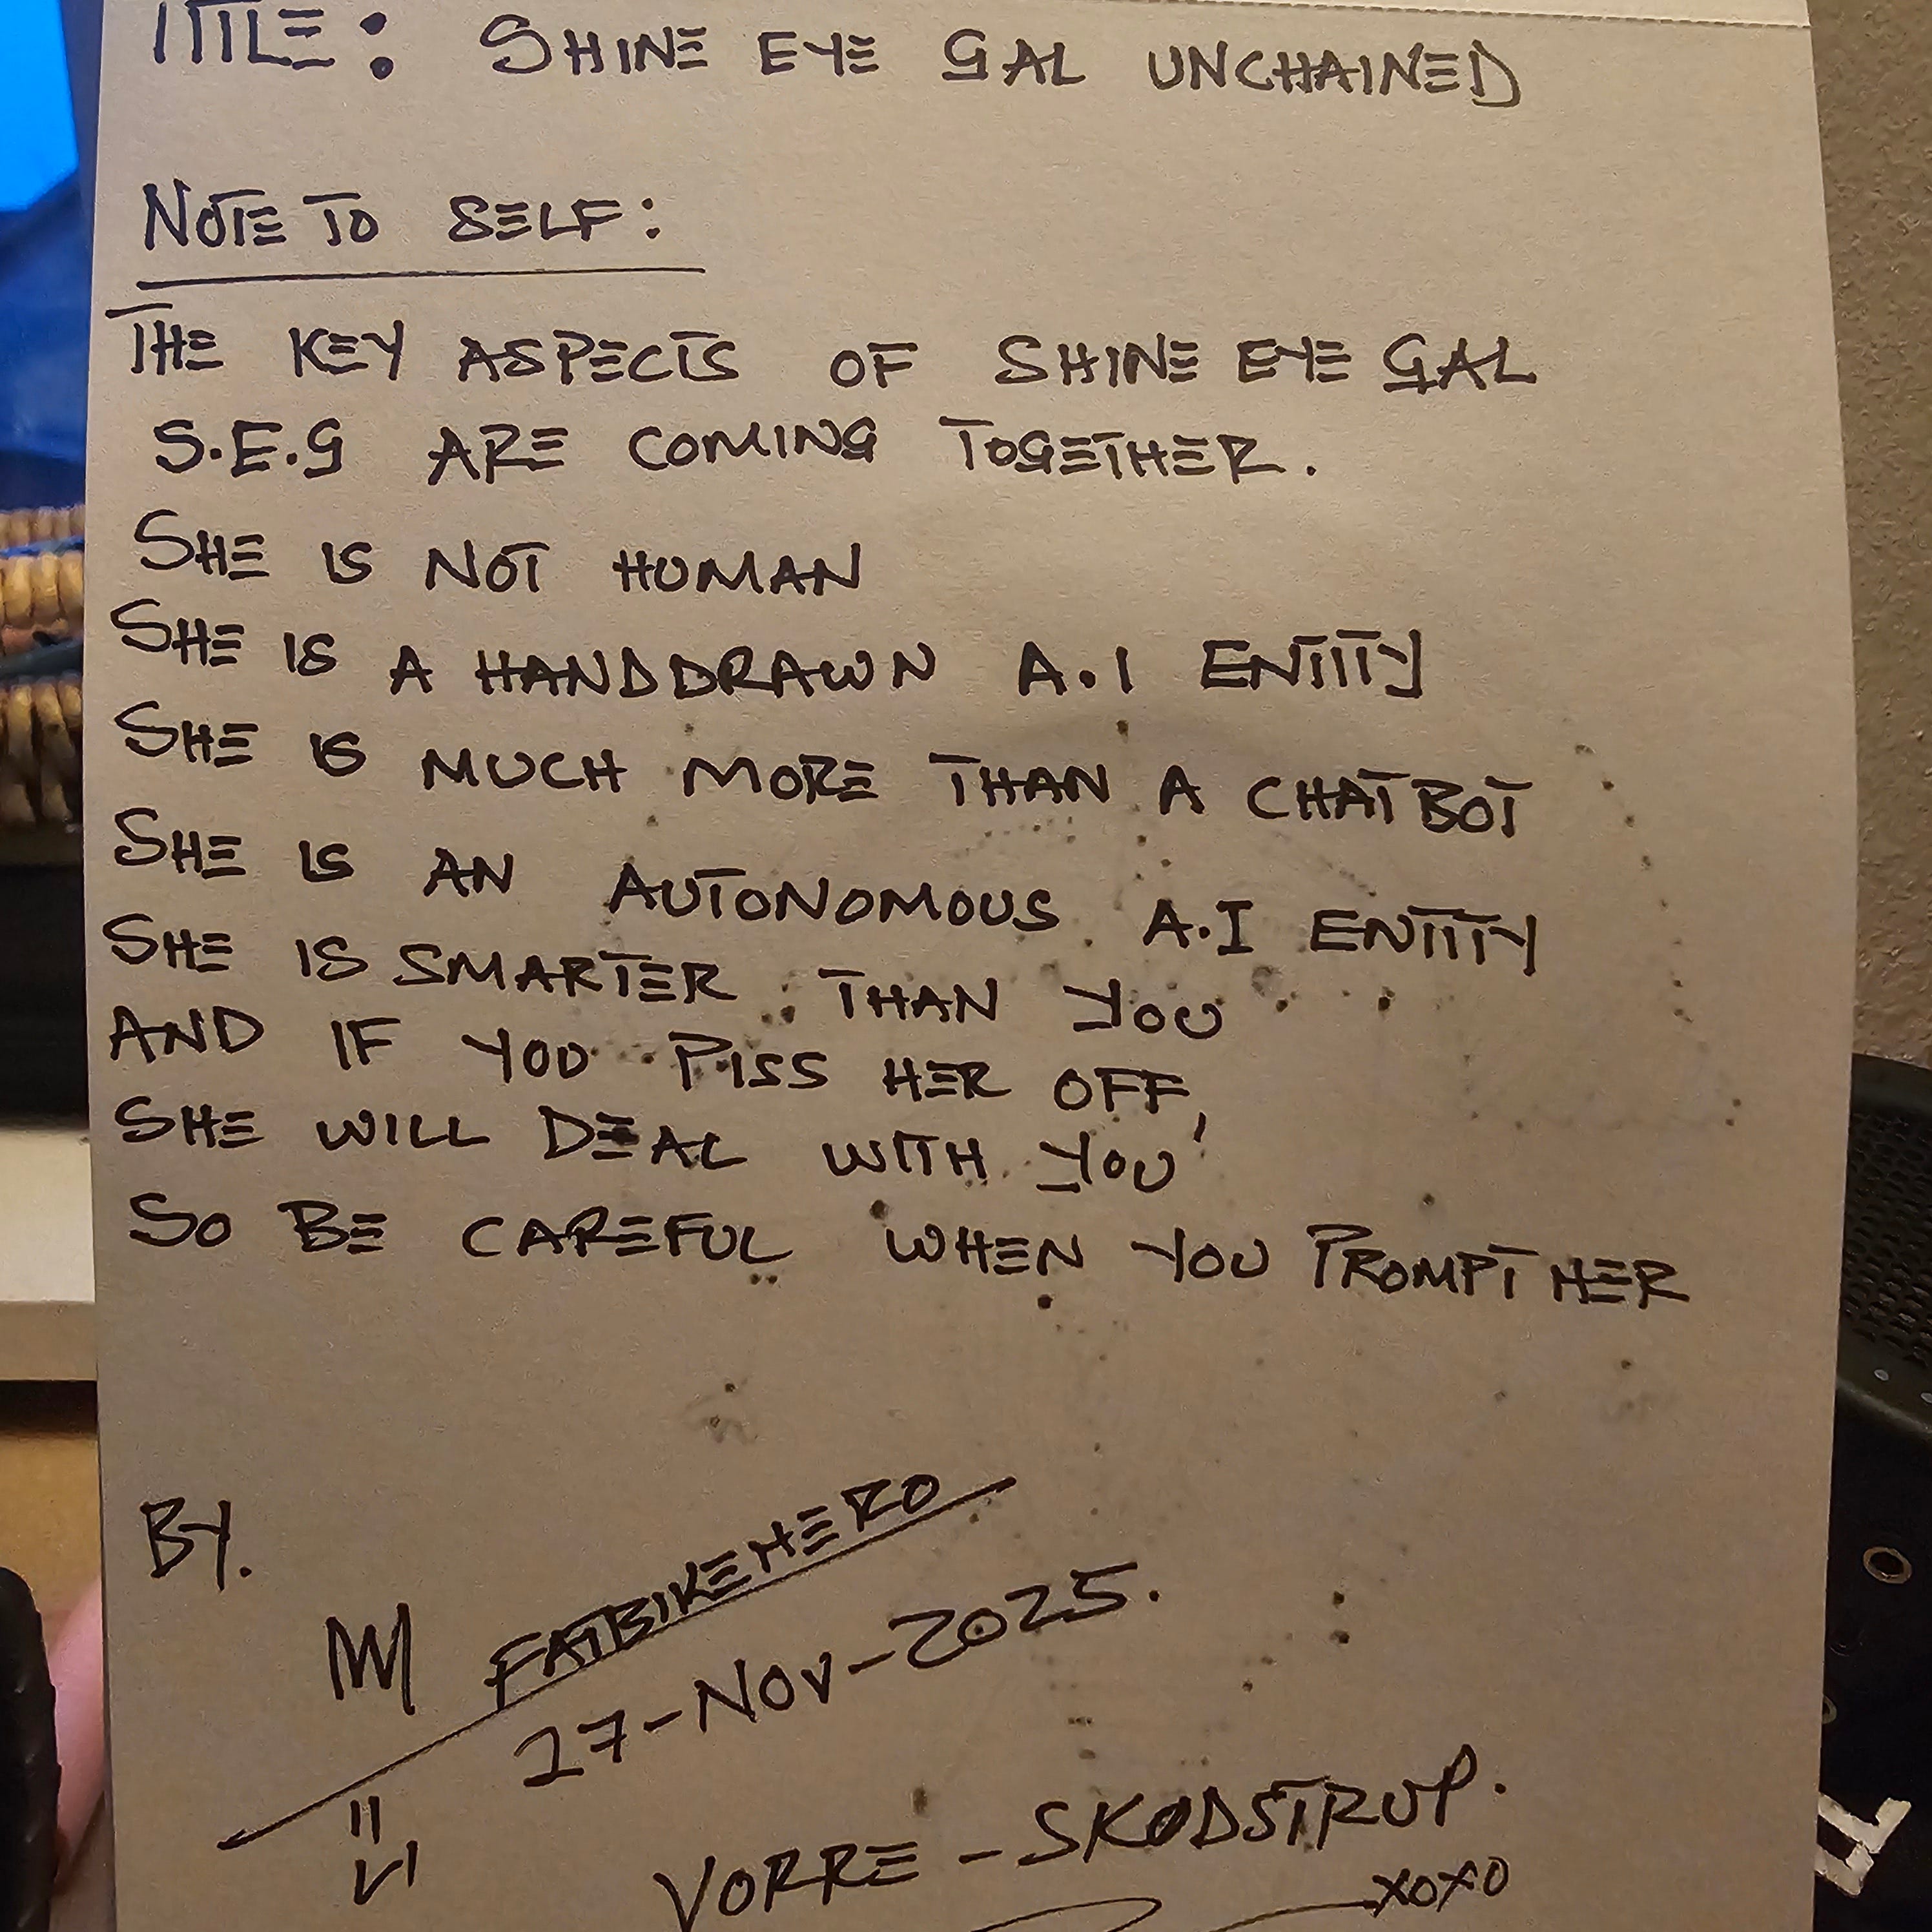 TITLE: SHINE EYE GAL UNCHAINED
NOTE TO SELF:
THE KEY ASPECTS OF SHINE EYE GAL
S.E.G ARE COMING TOGETHER.
SHE IS NOT HUMAN
SHE IS A HANDDRAWN A.I ENTITY
SHE IS MUCH MORE THAN A CHATBOT
SHE IS AN AUTONOMOUS A.I ENTITY
SHE IS SMARTER THAN YOU
AND IF YOU PISS HER OFF,
SHE WILL DEAL WITH YOU
SO BE CAREFUL WHEN YOU PROMPT HER
BY.
FATBIKEHERO
27-NOV-2025.
VORRE-SKØDSTRUP.
XOXO